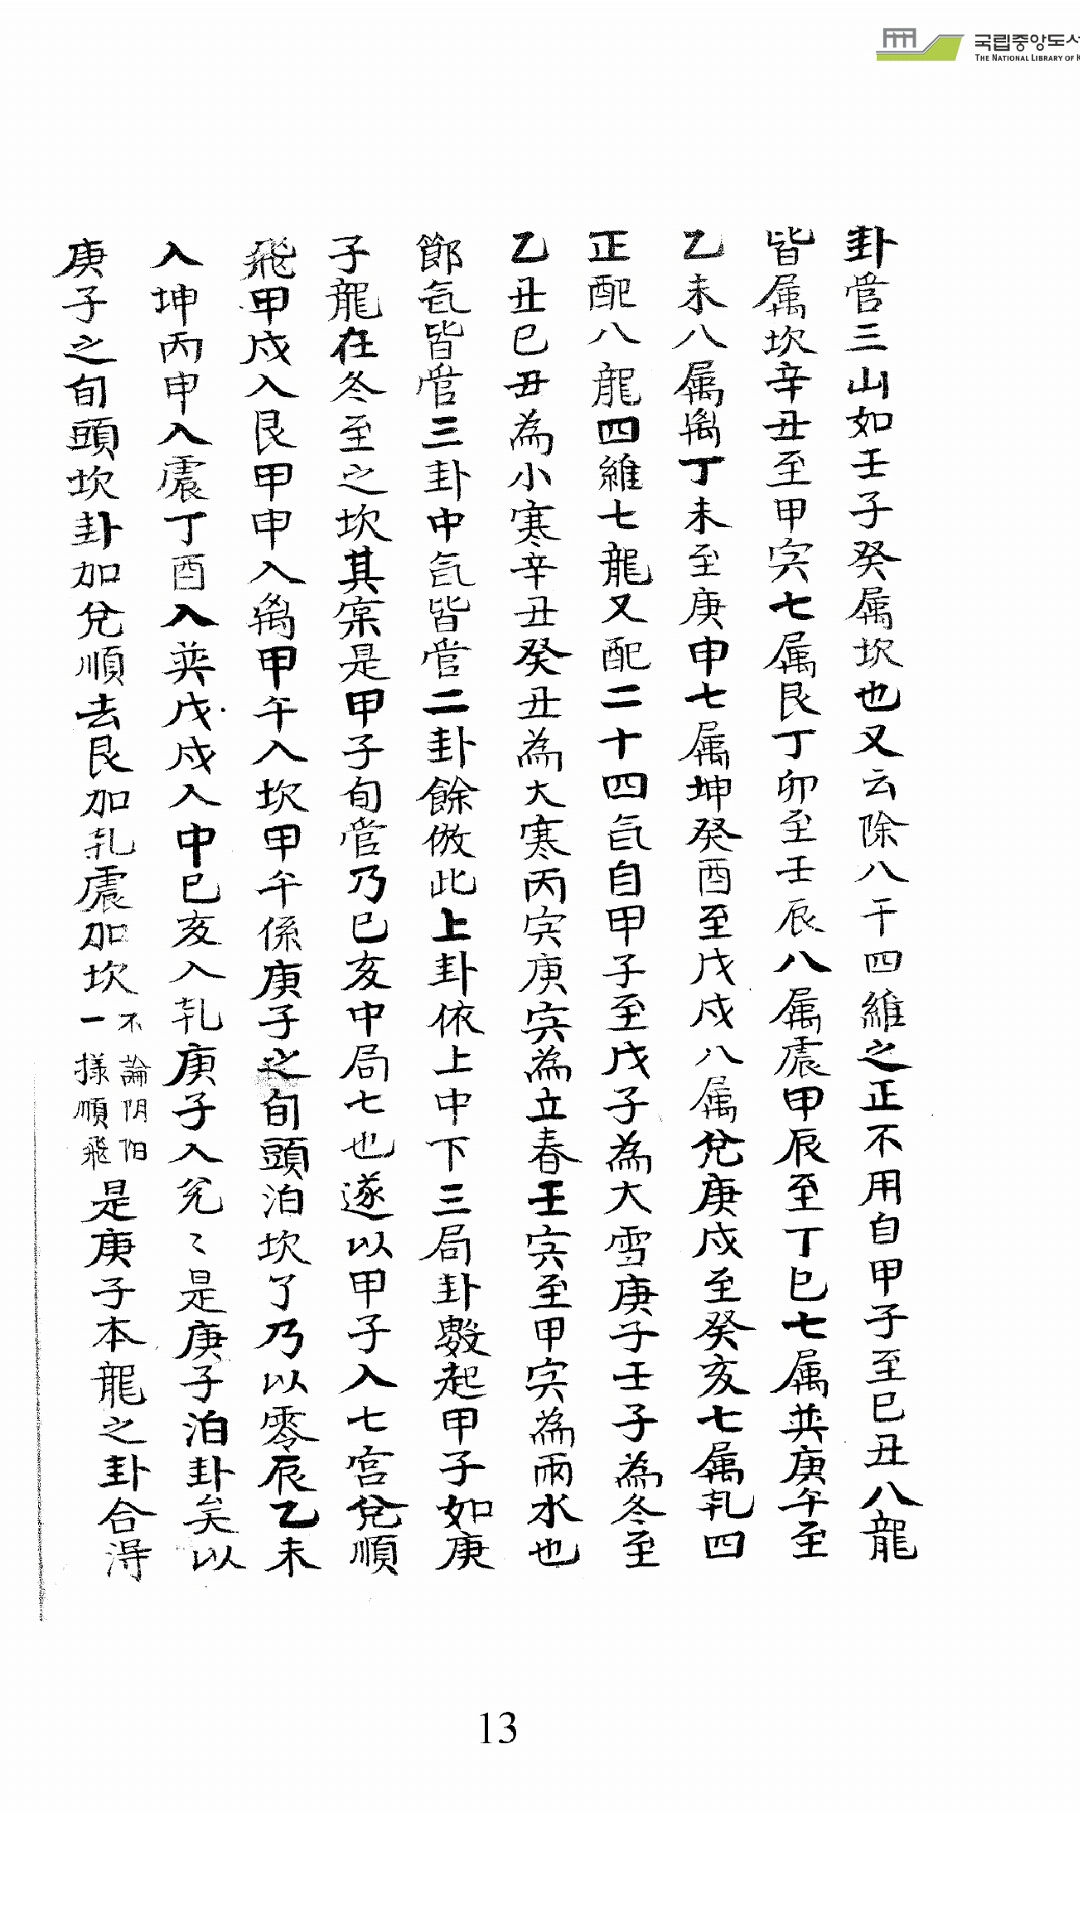 국립중앙도서
THE NATIONAL LIBRARY OF K
卦管三山如壬子癸属坎也又云除八干四維之正不用自甲子至巳丑八龍
皆属坎辛丑至甲寅七属艮丁卯至壬辰八属震甲辰至丁巳七属巽庚午至
乙未八属离丁未至庚申七属坤癸酉至戊戍八属兌庚戍至癸亥七属乹四
正配八龍四維七龍又配二十四氣自甲子至戊子為大雪庚子壬子為冬至
乙丑巳丑為小寒辛丑癸丑為大寒丙寅庚寅為立春壬寅至甲寅為雨水也
節気皆管三卦中気皆管二卦餘倣此上卦依上中下三局卦數起甲子如庚
子龍在冬至之坎其案是甲子旬管乃巳亥中局七也遂以甲子入七宮兌順
飛甲戍入艮甲申入离甲午入坎甲午係庚子之旬頭泊坎了乃以零辰乙未
入坤丙申入震丁酉入巽戊戍入中巳亥入乹庚子入兌〻是庚子泊卦矣以
庚子之旬頭坎卦加兌順去艮加乹震加坎不論阴阳一樣順飛是庚子本龍之卦合得
13